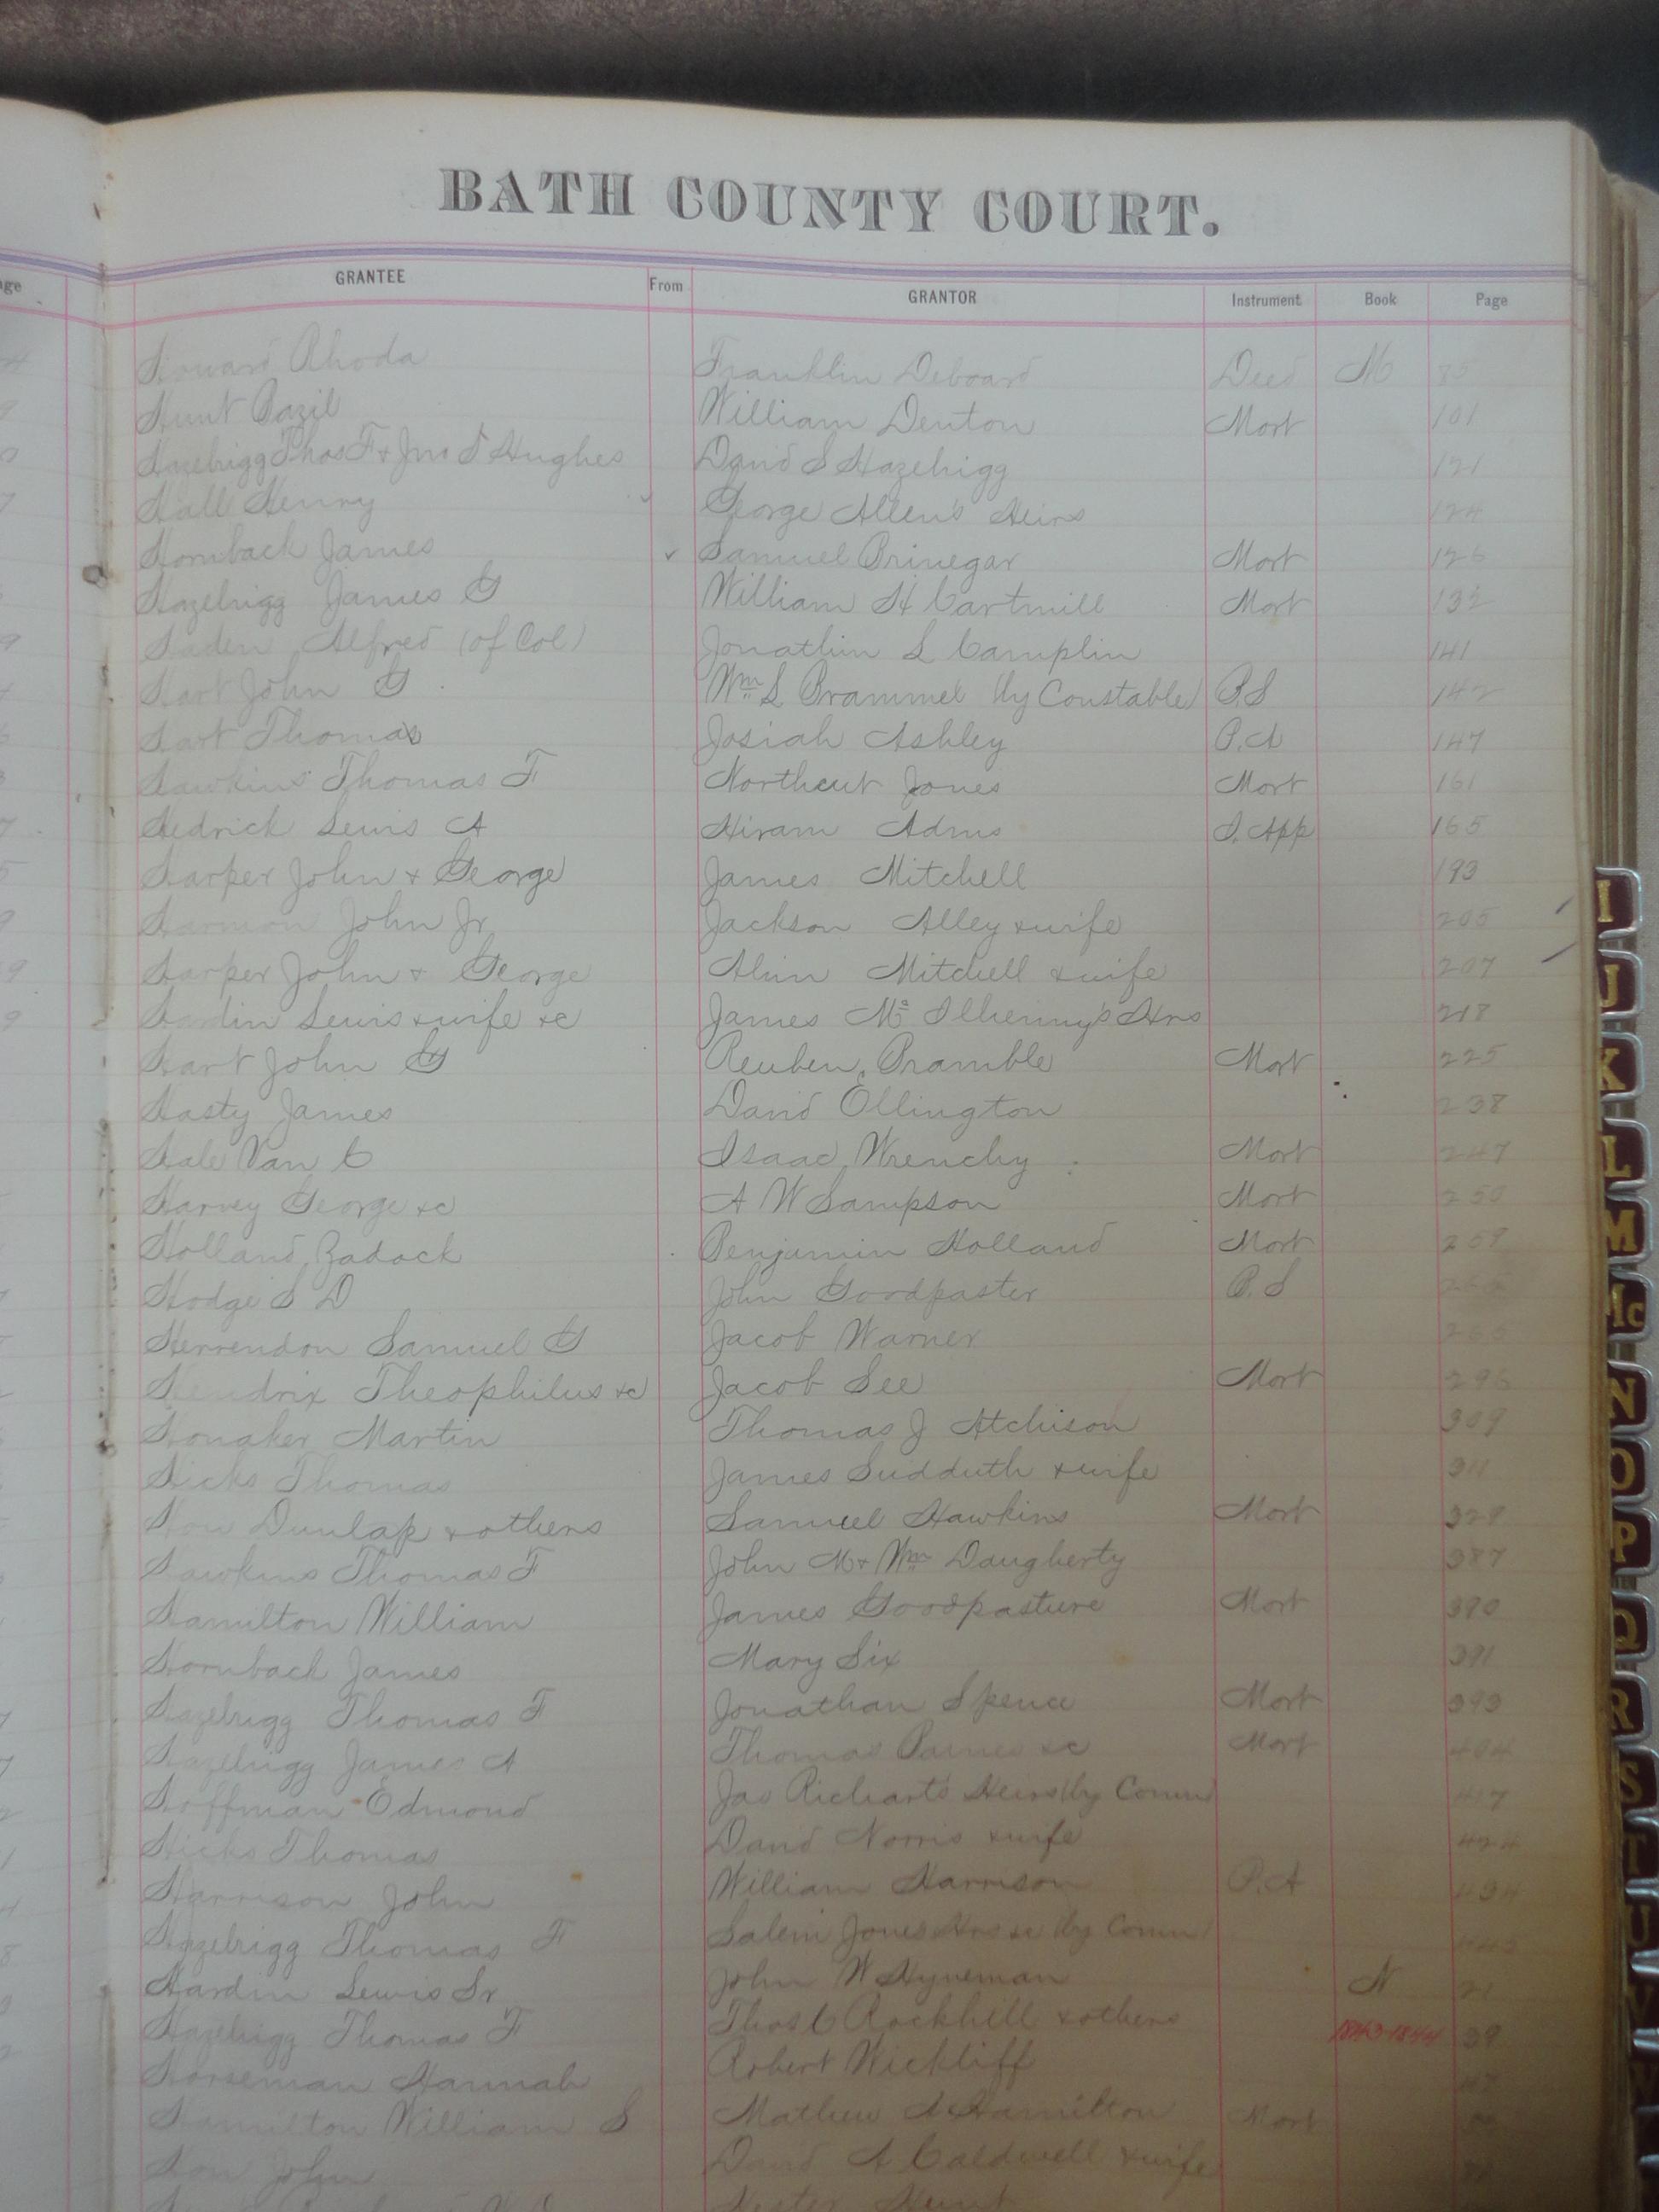 BATH COUNTY COURT.
GRANTEE From GRANTOR Instrument Book Page
Howard Rhoda Franklin Deboard Deed M 85
Hunt Bazil William Denton Mort 101
Hazelrigg Thos F & Jno S Hughes David S Hazelrigg 121
Hall Henry George Allen's Heirs 124
Hornback James Samuel Brinegar Mort 126
Hazelrigg James G William H Cartmill Mort 132
Haden Alfred (of Col) Jonathin L Camplin 141
Hart John G Wm L Brammel (by Constable) B.S 142
Hart Thomas Josiah Ashley P.A 147
Hawkins Thomas F Northcut Jones Mort 161
Hedrick Lewis A Hiram Adms App 165
Harper John & George James Mitchell 193
Harmon John Jr Jackson Alley & wife 205
Harper John & George Mitchell & wife 207
Hardin Lewis & wife &c James Mc Ilhenny's Hrs 218
Hart John G Reuben Bramble Mort 225
Hasty James David Ellington 238
Hale Van C Isaac Mort 247
Harvey George &c A W Sampson Mort 250
Holland Zadock Benjamin Holland Mort 259
Hodge S D John Goodpaster B.S
Herrendon Samuel G Jacob Warner
Hendrix Theophilus &c Jacob See Mort 296
Honaker Martin Thomas J Atchison 309
Hicks Thomas James Sudduth & wife 311
How Dunlap & others Samuel Hawkins Mort 329
Hawkins Thomas F John M & Wm Daugherty 387
Hamilton William James Goodpasture Mort 390
Hornback James Mary Six 391
Hazelrigg Thomas F Jonathan Spence Mort 393
Hazelrigg James A Thomas &c Mort 404
Hoffman Edmond Jas Richart's Heirs (by Comm) 417
Hicks Thomas David Norris & wife 424
Harrison John William Harrison P.A 434
Hazelrigg Thomas F Salem Jones Hrs &c (by Comm) 445
Hardin Lewis Sr John W Hyneman N 21
Hazelrigg Thomas F Thos C Rockhill & others 1843-1844 39
Horseman Hannah Robert Wickliff
Hamilton William S Mathew A Hamilton Mort
How John David A Caldwell & wife
Hester Hunt
I
J
K
L
M
Mc
N
O
P
Q
R
S
T
U
V